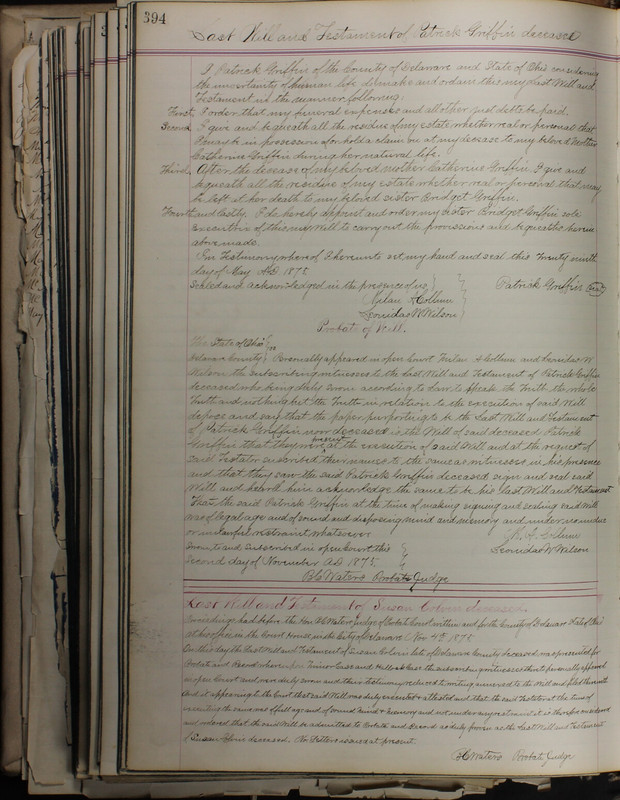 394
Last Will and Testament of Patrick Griffin deceased
I Patrick Griffin of the County of Delaware and State of Ohio considering
the uncertainty of human life do make and ordain this my Last Will and
Testament in the manner following:
First, I order that my funeral expenses and all other just debts be paid.
Second. I give and bequeath all the residue of my estate whether real or personal that
I may be in possession of or hold a claim on at my decease to my beloved Mother
Catherine Griffin during her natural life.
Third. After the decease of my beloved mother Catherine Griffin I give and
bequeath all the residue of my estate whether real or personal that may
be left at her death to my beloved sister Bridget Griffin.
Fourth and lastly. I do hereby appoint and order my sister Bridget Griffin sole
executrix of this my Will to carry out the provisions and bequests herein
above made.
In Testimony whereof I hereunto set my hand and seal this Twenty ninth
day of May A.D 1875
Sealed and acknowledged in the presence of us } Patrick Griffin (seal)
Milan A Collum
Leonidas W Wilson
Probate of Will.
The State of Ohio } ss
Delaware County } Personally appeared in open Court Milan A Collum and Leonidas W
Wilson the subscribing witnesses to the Last Will and Testament of Patrick Griffin
deceased who being duly sworn according to law to speak the Truth the whole
Truth and nothing but the Truth in relation to the execution of said Will
depose and say that the paper purporting to be the Last Will and Testament
of Patrick Griffin now deceased is the Will of said deceased Patrick
Griffin that they were present at the execution of said Will and at the request of
said Testator subscribed their names to the same as witnesses in his presence
and that they saw the said Patrick Griffin deceased sign and seal said
Will and heard him acknowledge the same to be his Last Will and Testament
That the said Patrick Griffin at the time of making signing and sealing said Will
was of legal age and of sound and disposing mind and memory and under no undue
or unlawful restraint whatsoever
Sworn to and subscribed in open Court this } M. A. Collum
Second day of November A.D 1875. } Leonidas W Wilson
B C Waters Probate Judge
Last Will and Testament of Susan deceased.
Proceedings had before the Hon B C Waters Judge of Probate Court within and for the County of Delaware State of Ohio
at his office in the Court House in the City of Delaware Nov 4th 1875
On this day the Last Will and Testament of Susan late of Delaware County deceased was presented for
Probate and Record whereupon Case and Case the subscribing witnesses thereto personally appeared
in open Court and were duly sworn and their Testimony reduced to writing annexed to the Will and filed therewith
And it appearing to the Court that said Will was duly executed & attested and that the said Testator at the time of
executing the same was of full age and of sound Mind & memory and not under any restraint it is therefore considered
and ordered that the said Will be admitted to Probate and Record as duly proven as the Last Will and Testament
of Susan deceased. No Letters issued at present.
B C Waters Probate Judge